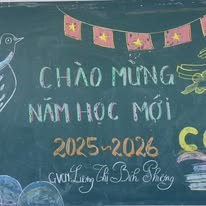 CHÀO MỪNG
NĂM HỌC MỚI
2025~2026
GVCN: Lương Thị Bích Phượng